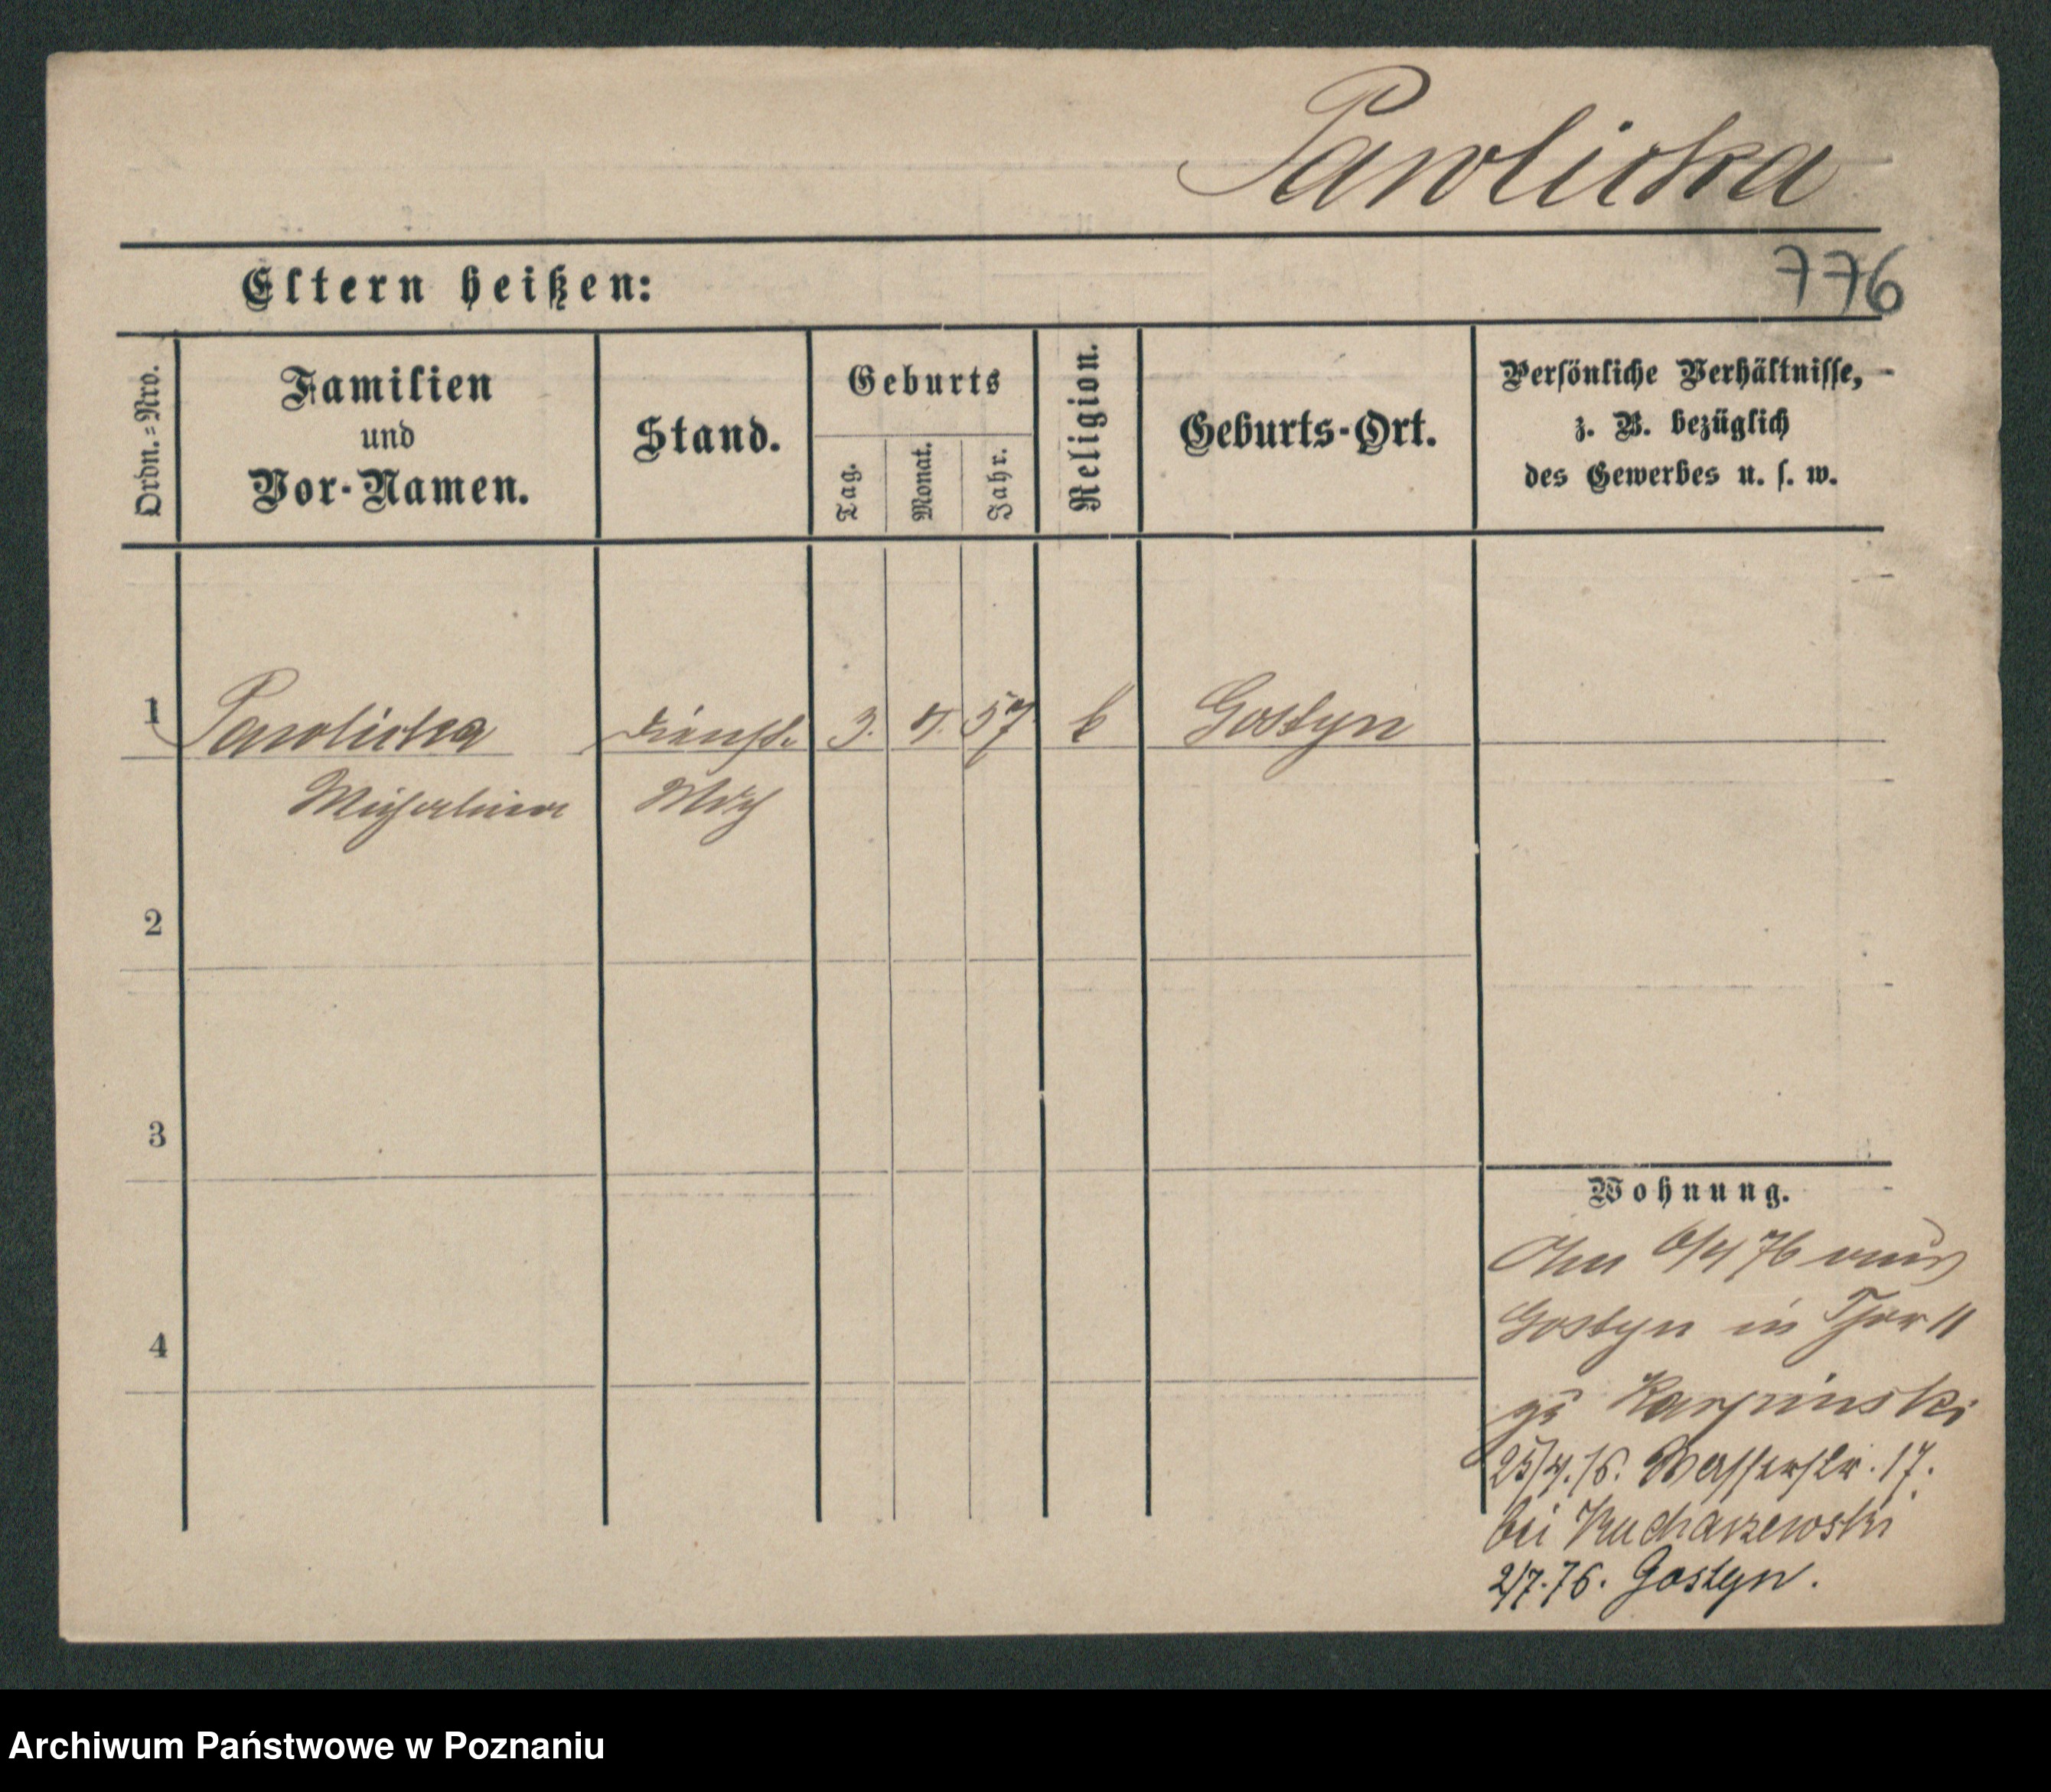 Pawlicka
776
Eltern heißen:
Ordn.=Nro.
Familien
und
Vor-Namen.
Stand.
Geburts
Tag.
Monat.
Jahr.
Religion.
Geburts-Ort.
Persönliche Verhältnisse,
z. B. bezüglich
des Gewerbes u. s. w.
1 Pawlicka Dienst 3. 57 k Gostyn
Michalina
2
3
4
Wohnung.
Am 6/4 76 aus
Gostyn in 11
zu Karpinski
25/4. 76. Wasserstr. 17.
bei Kucharzewski
2/7. 76. Gostyn.
Archiwum Państwowe w Poznaniu